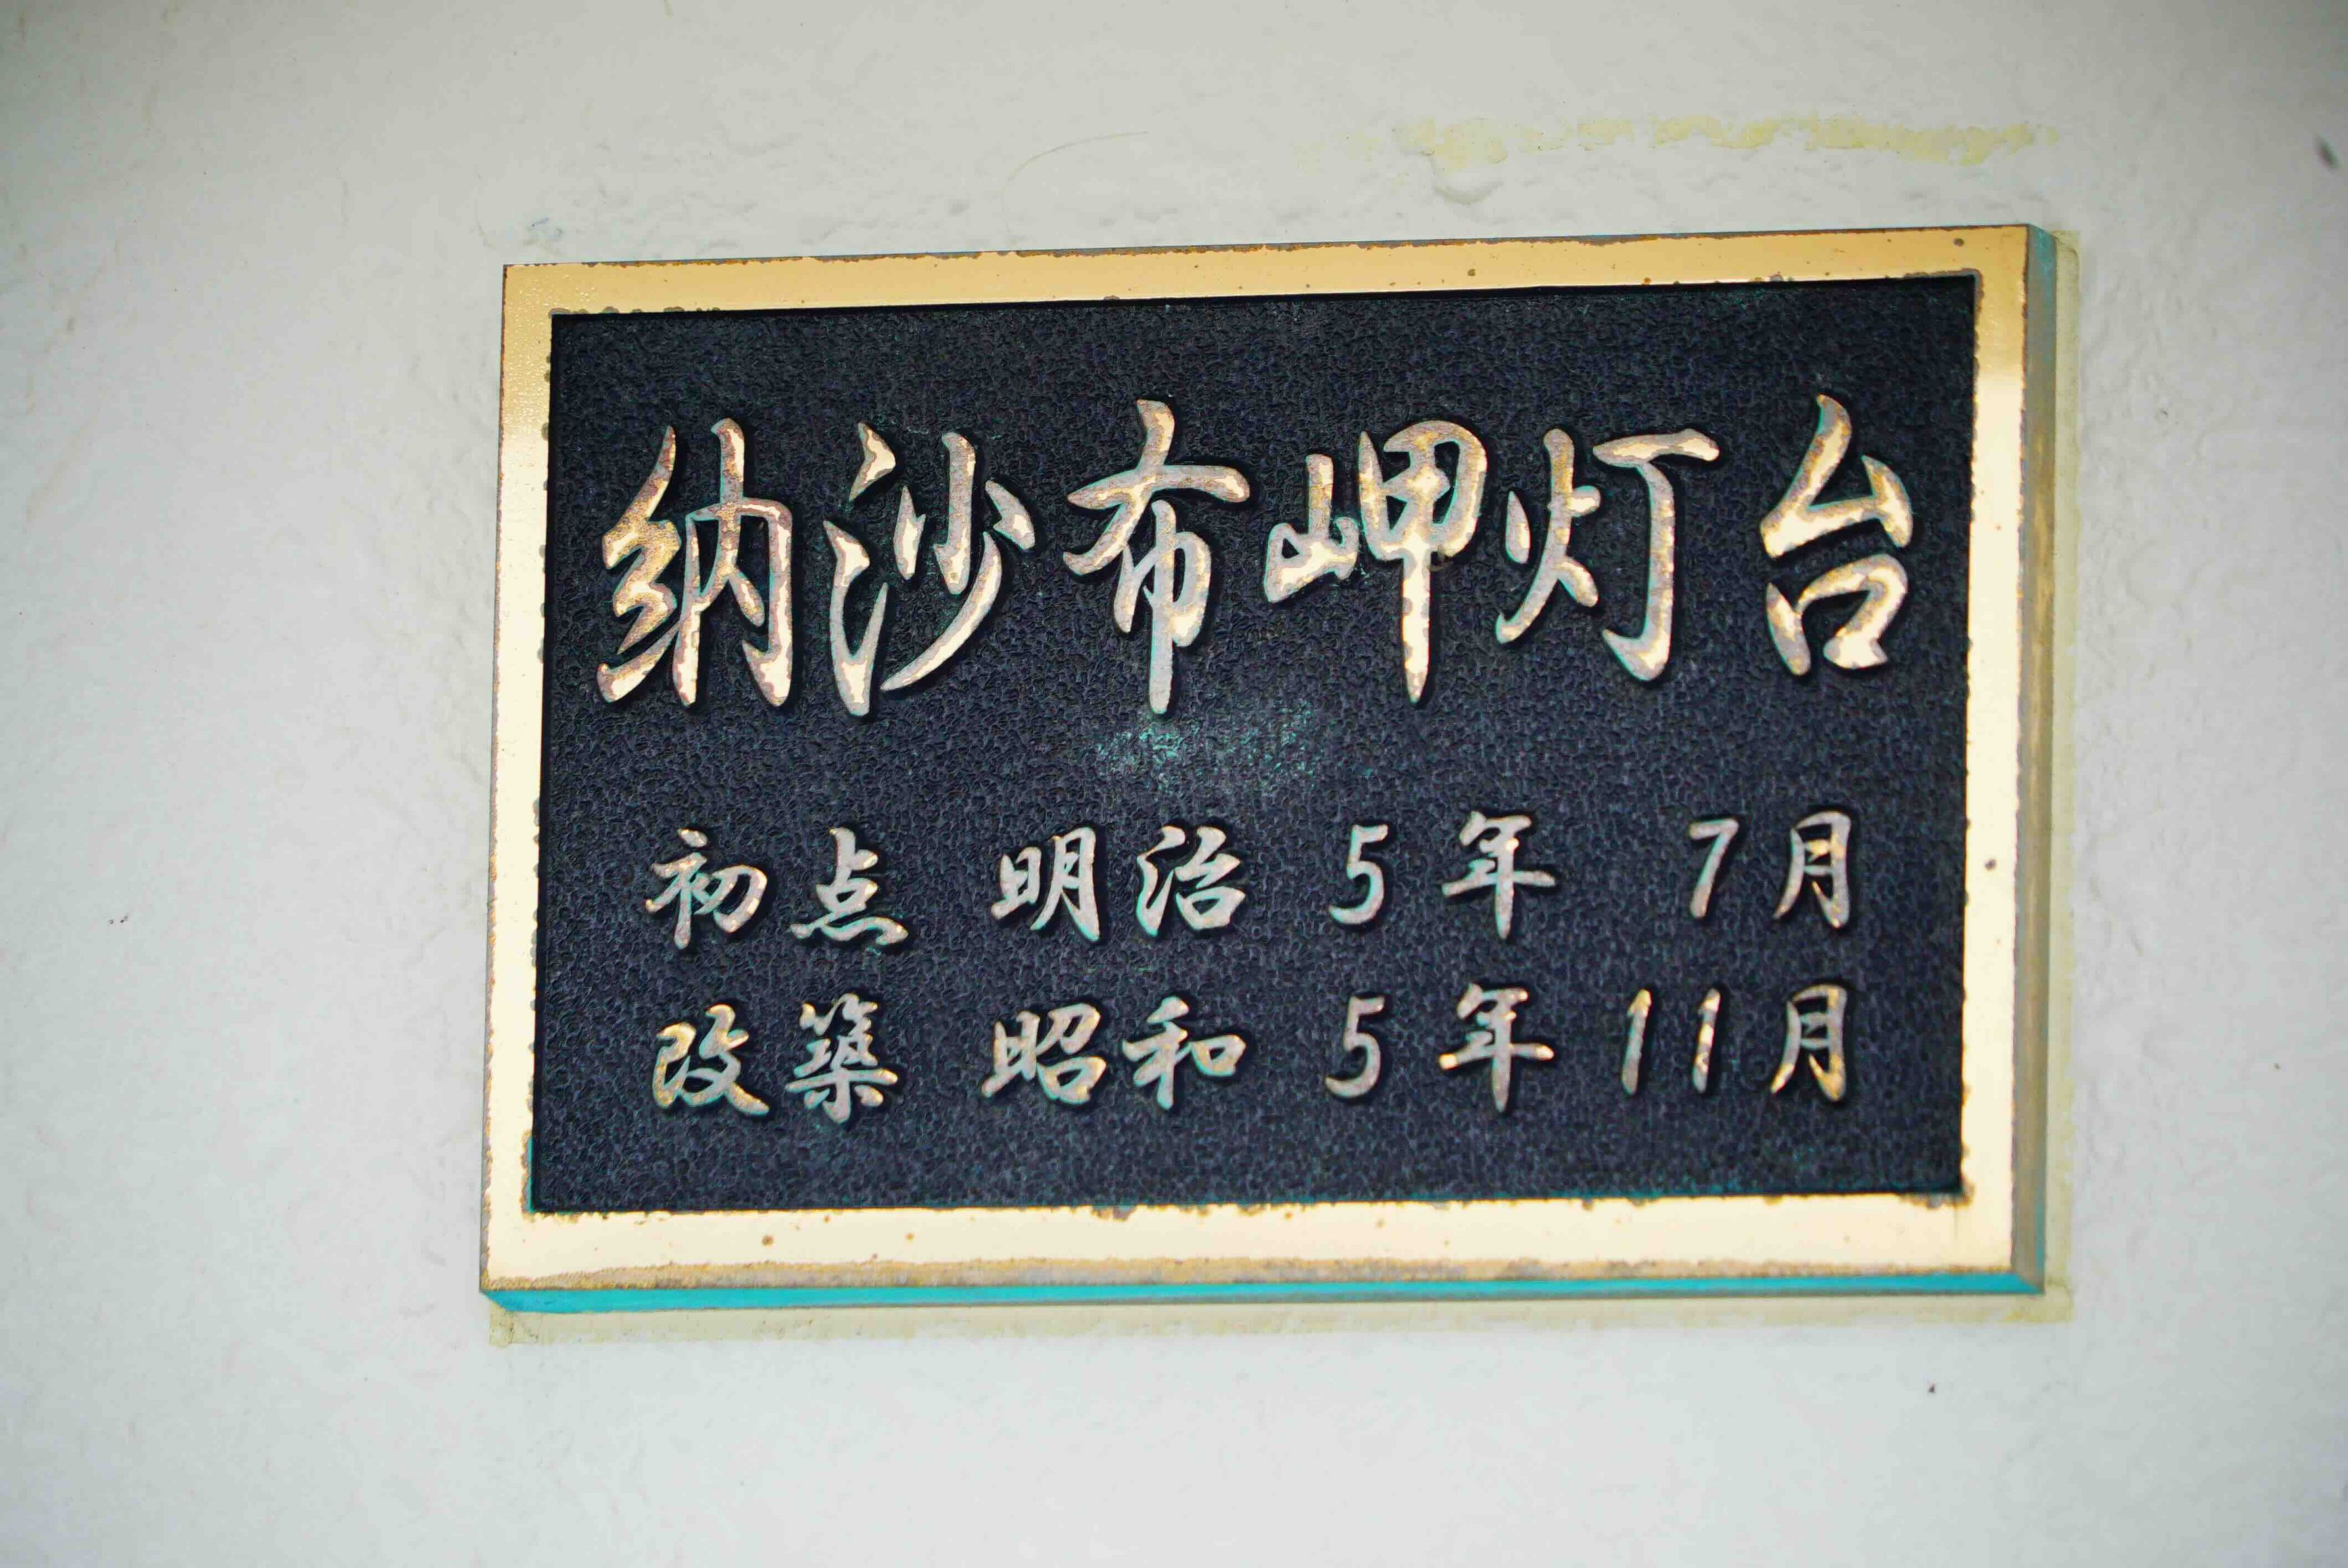 納沙布岬灯台
初点 明治 5年 7月
改築 昭和 5年 11月